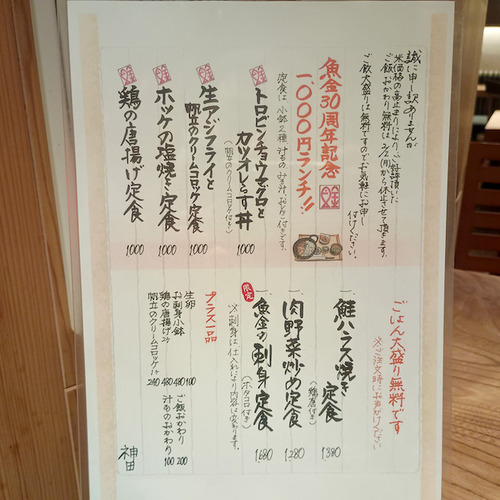 誠に申し訳ありませんが
米価格の高止まりにより、ご好評頂いた
ご飯おかわり無料は2/2(月)から休止させて頂きます。
ご飯大盛りは無料ですのでお気軽にお申し
付けください。
魚金30周年記念
一、〇〇〇円ランチ!!
定食は小鉢2種 汁もの
トロビンチョウマグロと
カツオしらす丼 1000
(帆立のクリームコロッケ付き)
生アジフライと
帆立のクリームコロッケ定食 1000
ホッケの塩焼き定食 1000
鶏の唐揚げ定食 1000
ごはん大盛り無料です
※ご注文時にお声がけください
一、鮭ハラス焼き定食 1380
(鶏唐付き)
一、肉野菜炒め定食 1,280
限定
一、魚金の刺身定食 1,680
(ホタコロ付き)
※刺身は仕入れにより内容は変わります。
プラス一品
生卵 100
お刺身小鉢 480
鶏の唐揚げ2ケ 480
帆立のクリームコロッケ1ケ 240
ご飯おかわり 100
汁ものおかわり 200
神田